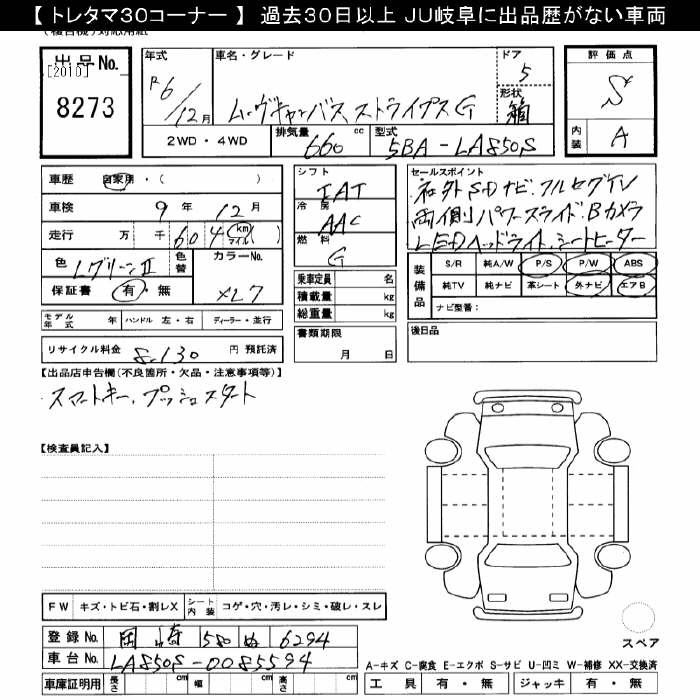 【 トレタマ30コーナー 】 過去30日以上 JU岐阜に出品歴がない車両
出品No.
[2010]
8273
年式
R6/12月
車名・グレード
ムーヴキャンバス ストライプスG
ドア
5
形状
箱
評価点
S
内装
A
2WD・4WD
排気量
660 cc
型式
5BA-LA850S
車歴 自家用・( )
車検 9年 12月
走行 万 千 604 km マイル
色 Lグリーン II
色替
カラーNo.
XL7
保証書 有・無
モデル年式 年 ハンドル 左・右 ディーラー・並行
リサイクル料金 8,130 円 預託済
シフト
IAT
冷房
AAC
燃料
G
乗車定員 名
積載量 kg
総重量 kg
書類期限
月 日
セールスポイント
社外SDナビ.フルセグTV
両側パワースライド.Bカメラ
LEDヘッドライト.シートヒーター
装備品
S/R 純A/W P/S P/W ABS
純TV 純ナビ 革シート 外ナビ エアB
ナビ型番:
後日品
【出品店申告欄(不良箇所・欠品・注意事項等)】
スマートキー.プッシュスタート
【検査員記入】
FW キズ・トビ石・割レX シート内装 コゲ・穴・汚レ・シミ・破レ・スレ
登録No. 岡崎 580 ぬ 6294
車台No. LA850S-0085594
車庫証明用 長さ cm 幅 cm 高さ cm
スペア
A-キズ C-腐食 E-エクボ S-サビ U-凹ミ W-補修 XX-交換済
工具 有・無 ジャッキ 有・無